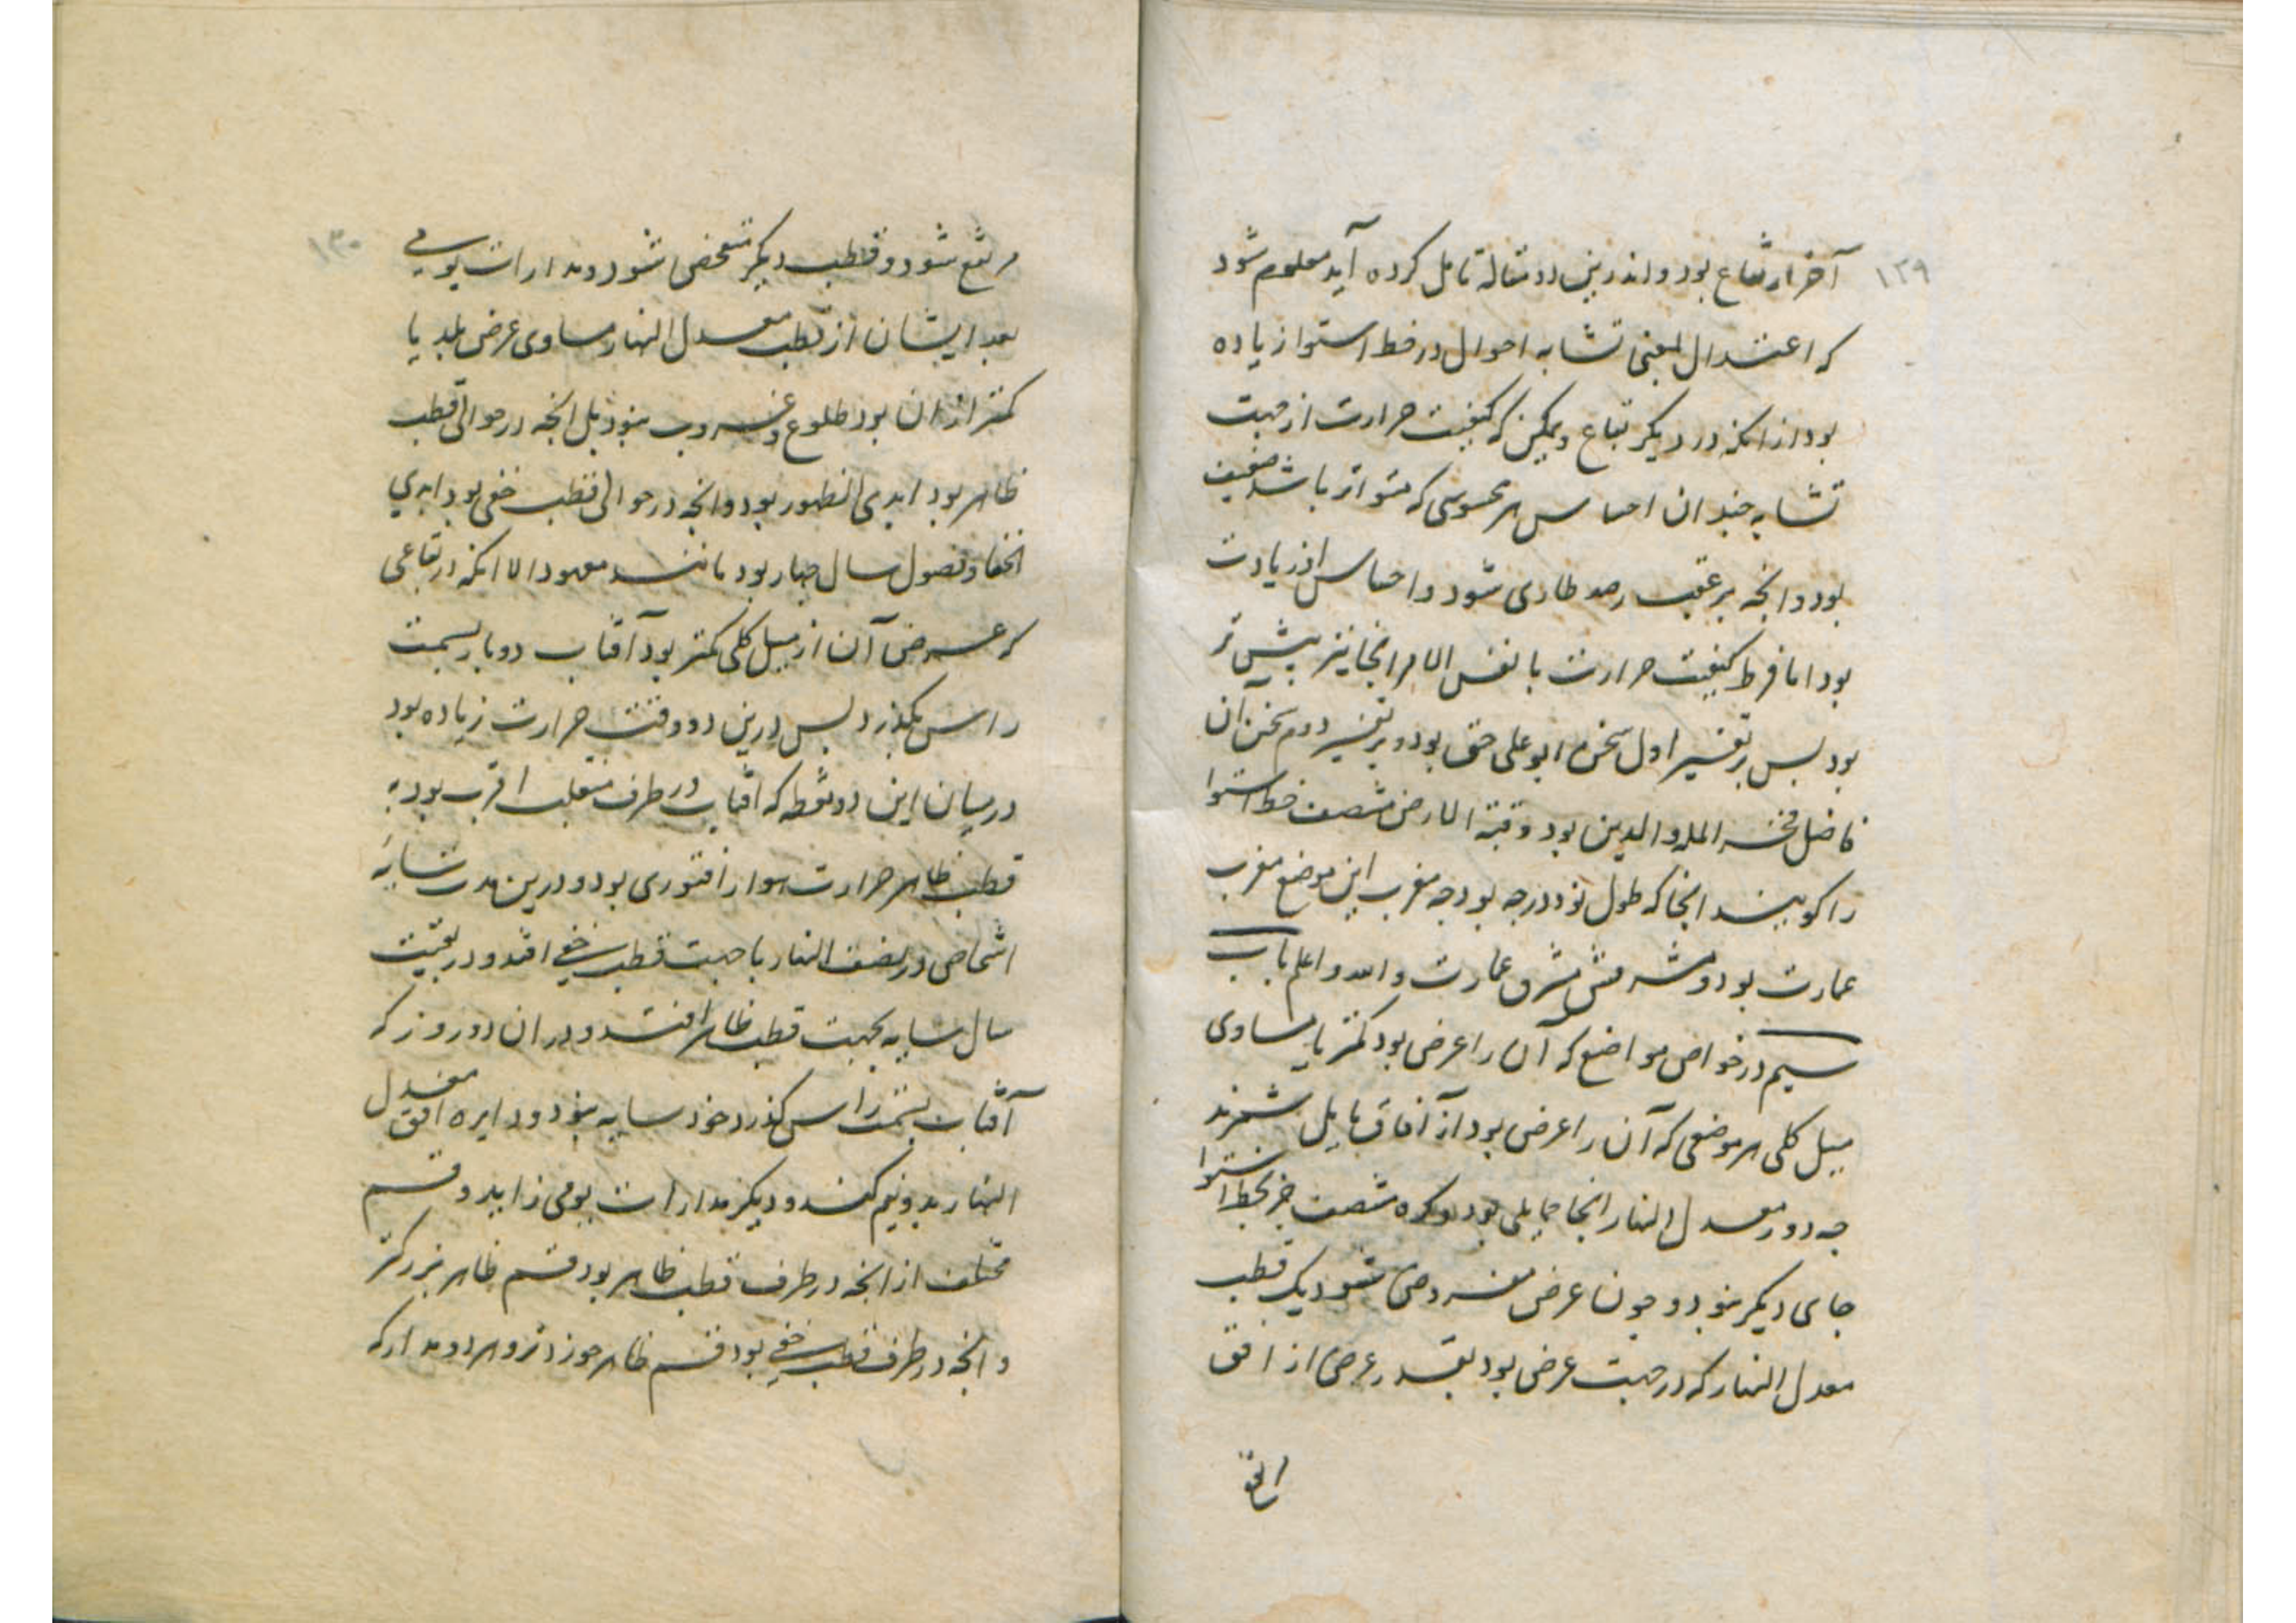 ۱۲۹
آخر ارتفاع بود و اندرین دو مقاله تامل کرده آید معلوم شود
که اعتدال بمعنی تشابه احوال در خط استوا زیاده
بود از انکه در دیگر بقاع و لیکن کیفیت حرارت از جهت
تشابه چندان احساس هر محسوسی که متواتر باشد ضعیف
بود وانچه بر عقب ضد طاری شود و احساس از زیادت
بود اما فرط کیفیت حرارت با نفس الامر انجا نیز بیش تر
بود بس بر تفسیر اول سخن ابو علی حق بود و بر تفسیر دوم سخن آن
فاضل فخر المله والدین بود و قبة الارض منتصف خط استوا
را کویند انجا که طول نود درجه بود جه مغرب این موضع مغرب
عمارت بود و مشرقش مشرق عمارت والله واعلم باب
سیم در خواص مواضع که آن را عرض بود کمتر یا مساوی
میل کلی هر موضعی که آن را عرض بود از آفاق مایل شمرند
جه دور معدل النهار انجا حمایلی بود و کره منتصف جز بخط استوا
جای دیکر نبود و جون عرض مفروض شود یک قطب
معدل النهار که در جهت عرض بود بقدر عرض از افق
۱۳۰
مرتفع شود و قطب دیکر منخفض شود و مدارات یومی
بعد ایشان از قطب معدل النهار مساوی عرض بلد یا
کمتر از ان بود طلوع و غروب نبود بل انچه در حوالی قطب
ظاهر بود ابدی الظهور بود وانچه در حوالی قطب خفی بود ابدی
الخفا و فصول سال جهار بود مانند معهود الا انکه در بقاعی
که عرض آن از میل کلی کمتر بود آفتاب دو بار بسمت
راس بکذرد بس درین دو وقت حرارت زیاده بود
در میان این دو نقطه که افتاب در طرف منقلب اقرب بود به
قطب ظاهر حرارت هوا را فتوری بود و درین مدت سایه
اشخاص در نصف النهار با جهت قطب خفی افتد و در بقیت
سال سایه بجهت قطب ظاهر افتد و در ان دو روز که
آفتاب بسمت راس کذرد خود سایه نبود و دایره افق معدل
النهار بدو نیم کند و دیکر مدارات یومی را بدو قسم
مختلف از انچه در طرف قطب ظاهر بود قسم ظاهر بزرکتر
و انچه در طرف قطب خفی بود قسم ظاهر خوردتر و هر دو مدار که